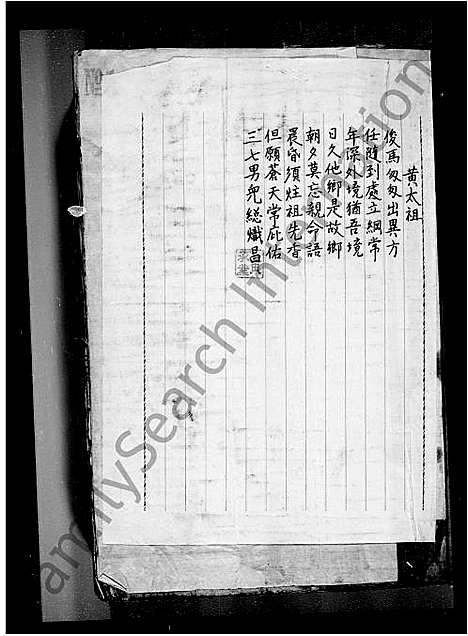 黄太祖
俊馬匆匆出異方
任隨到處立綱常
年深外境猶吾境
日久他鄉是故鄉
朝夕莫忘親命語
晨昏須炷祖先香
但願蒼天常庇佑
三七男兒総熾昌
No
amilySearch International